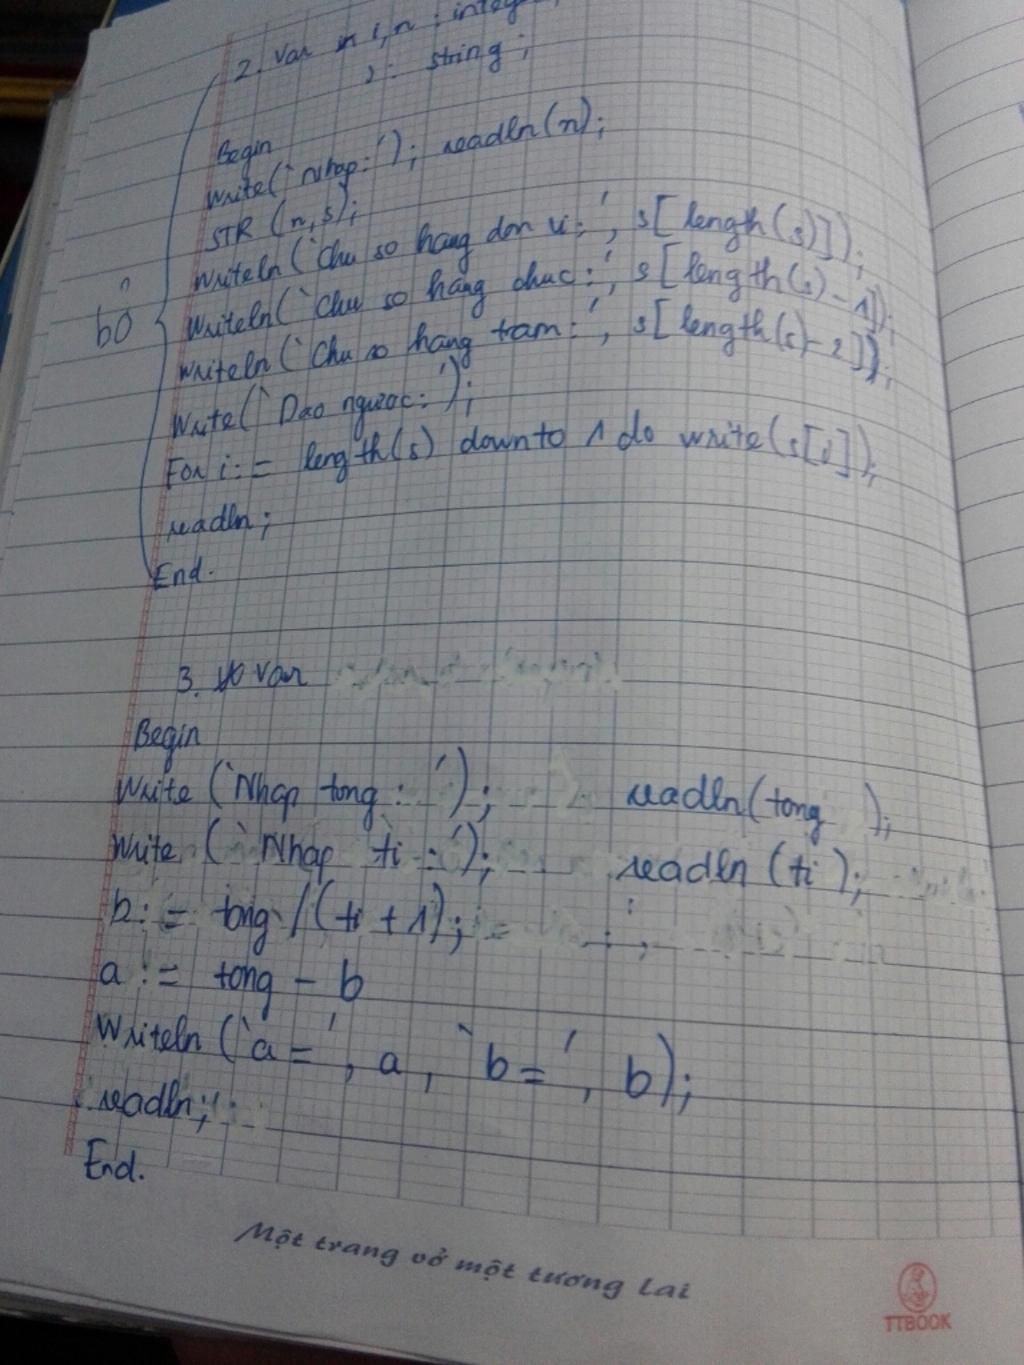 2. Var i, n : integ
s : string;
Begin
Write(`Nhap:'); readln(n);
STR (n,s);
Writeln(`Chu so hang don vi:', s[length(s)]);
bỏ
Writeln(`Chu so hang chuc:', s[length(s)-1]);
Writeln(`Chu so hang tram:', s[length(s)-2]);
Write(`Dao nguoc:');
For i:= length(s) downto 1 do write(s[i]);
readln;
End.
3. Var
Begin
Write (`Nhap tong: '); readln(tong );
Write (`Nhap ti:'); readln (ti);
b:= tong /(ti + 1);
a := tong - b
Writeln (`a=', a, `b=', b);
readln;
End.
Một trang vở một tương lai
TTBOOK